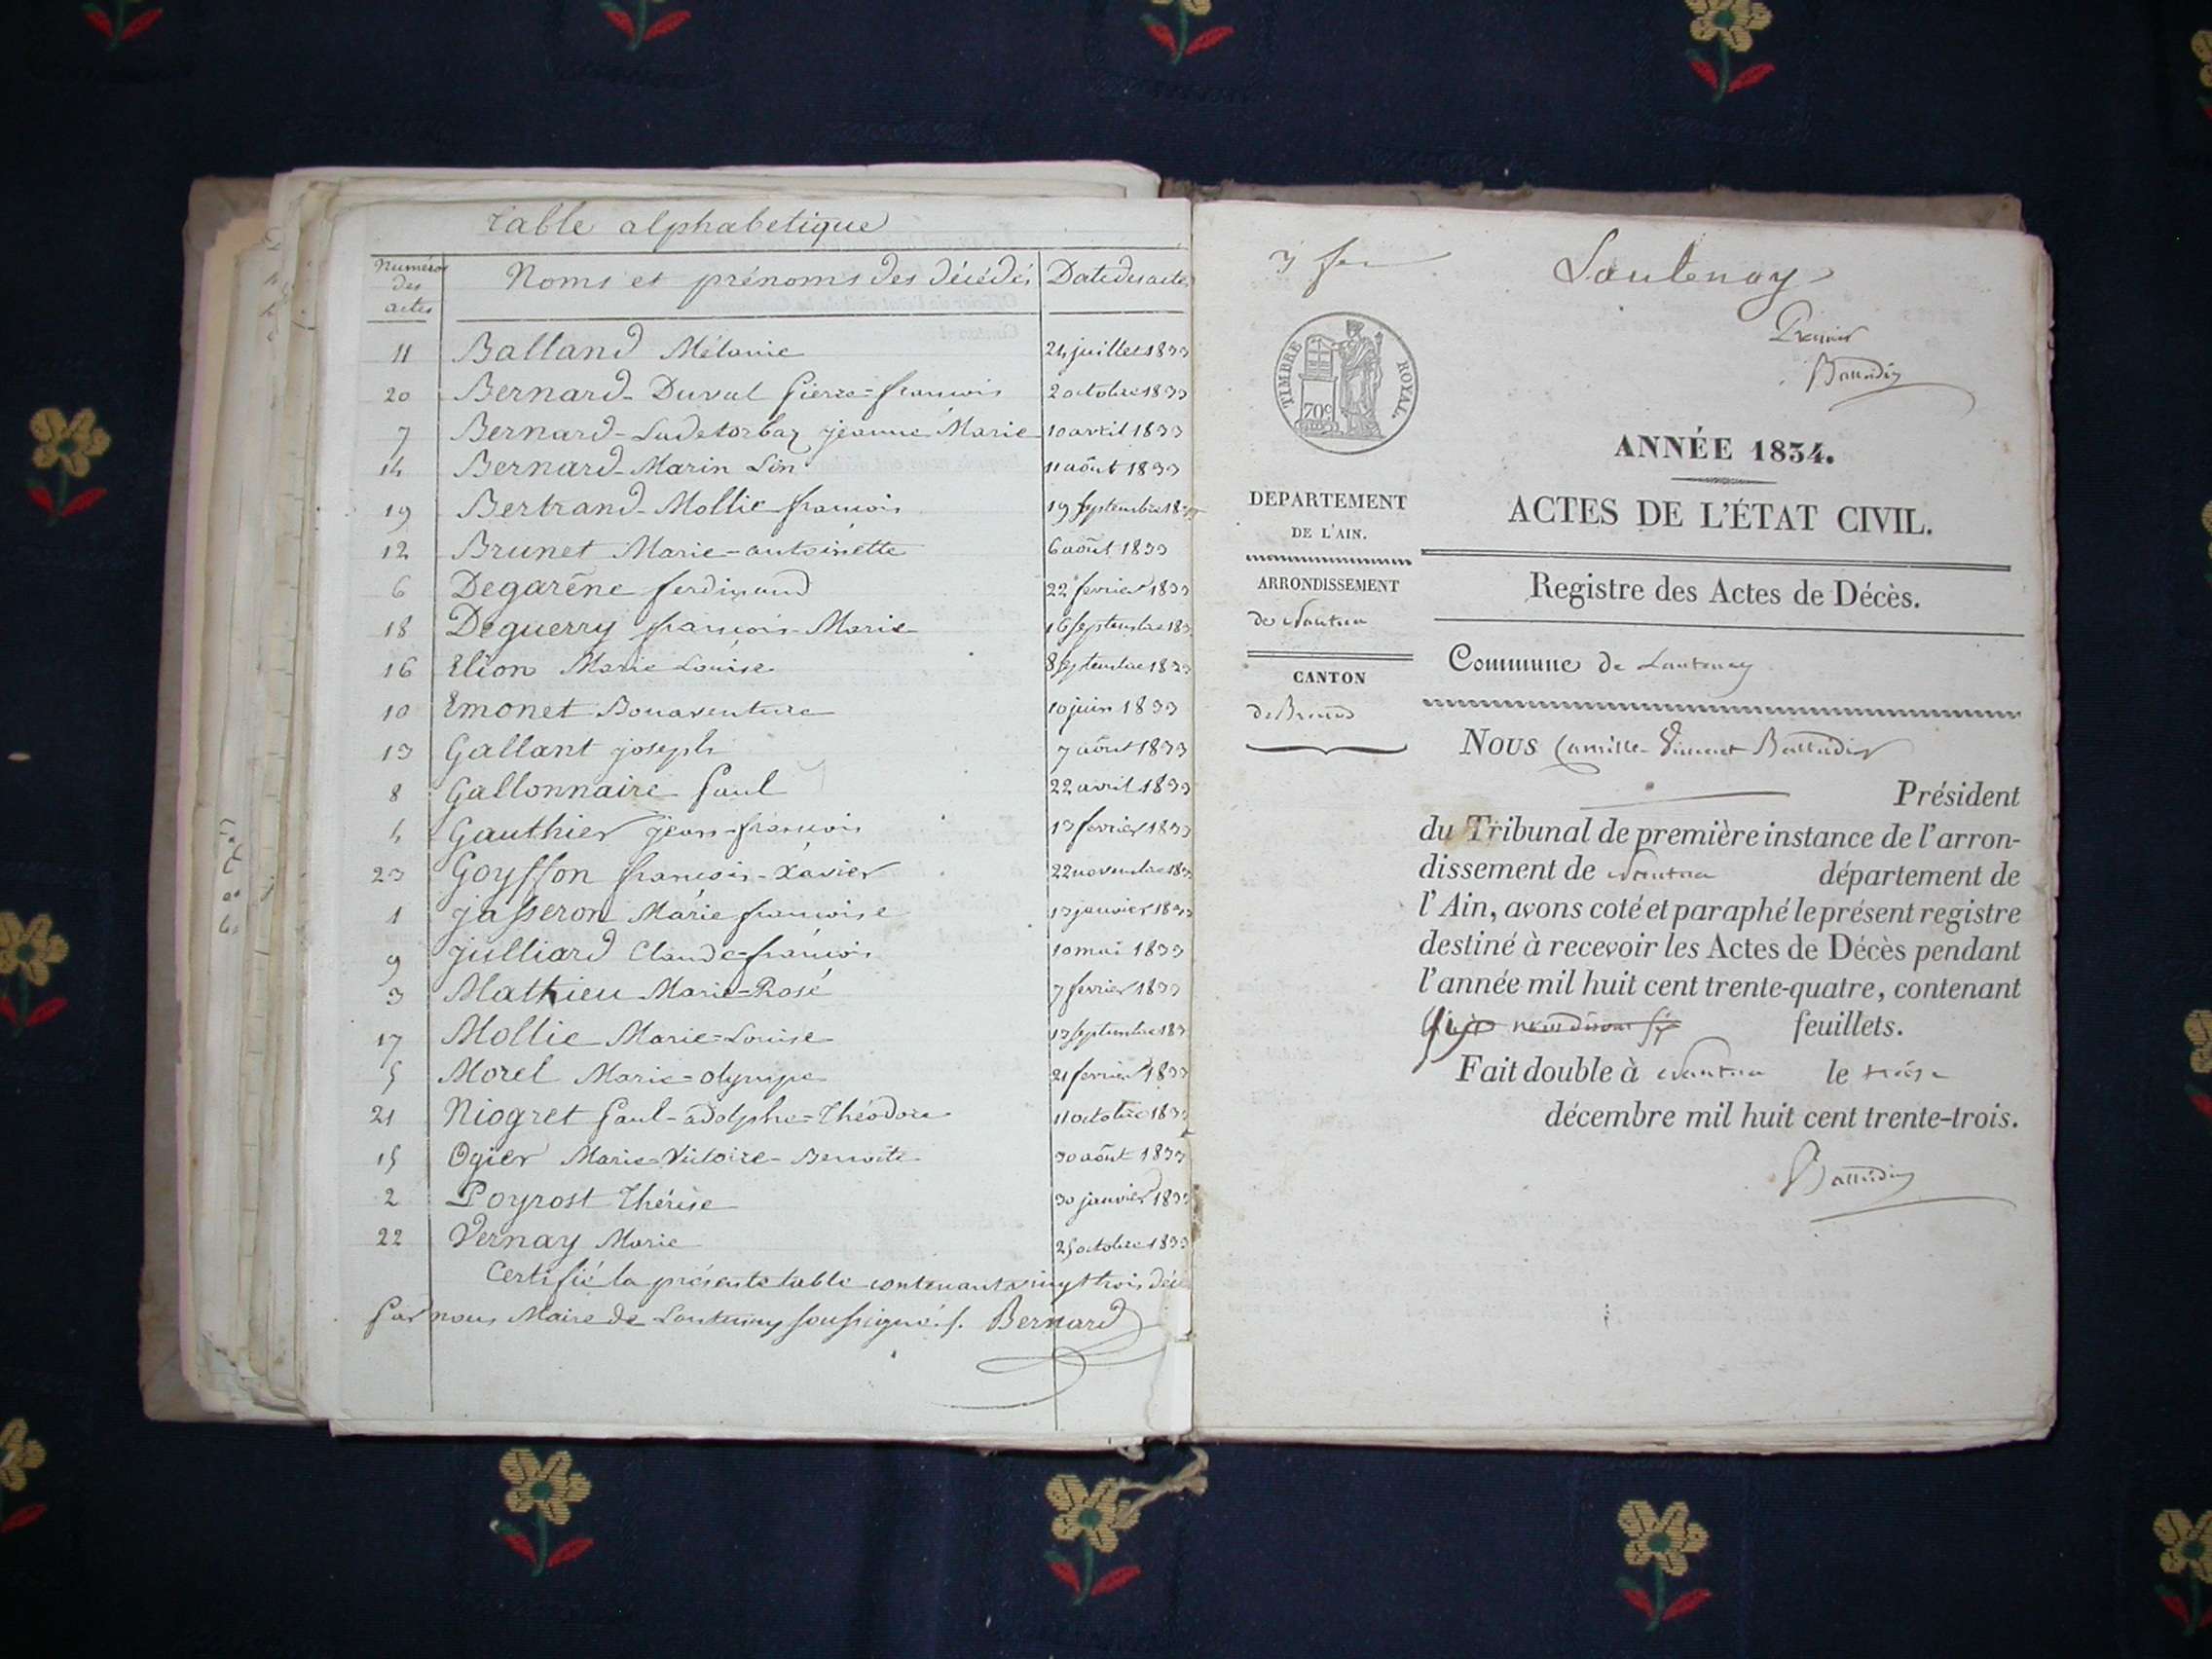 Table alphabetique
Numéros des actes Noms et prénoms des décédés Date des actes
11 Balland Mélanie 24 juillet 1833
20 Bernard-Duval pierre=françois 2 octobre 1833
7 Bernard- jeanne Marie 10 avril 1833
14 Bernard-Marin Lin 11 août 1833
19 Bertrand-Mollie françois 19 septembre 18
12 Brunet Marie-antoinette 6 août 1833
6 Degarêne ferdinand 22 fevrier 1833
18 Deguerry françois-Marie 16 septembre 183
16 Elion Marie Louise 8 septembre 1833
10 Emonet Bonaventure 10 juin 1833
13 Gallant joseph 7 août 1833
8 Gallonnaire paul 22 avril 1833
4 Gauthier jean-françois 13 fevrier 1833
23 Goyffon françois-Xavier 22 novembre 183
1 jasseron Marie françoise 13 janvier 1833
9 julliard Claude=françois 10 mai 1833
3 Mathieu Marie=Rose 7 fevrier 1833
17 Mollie Marie=Louise 13 septembre 183
5 Morel Marie=olympe 21 fevrier 1833
21 Niogret paul-adolphe=théodore 11 octobre 1833
15 Ogier Marie-Victoire-Benoite 30 août 1833
2 Poyrost thérèse 30 janvier 1833
22 Vernay Marie 25 octobre 1833
Certifié la présente table contenant vingt trois décé
par nous Maire de Lantenay soussigné. Bernard
3 f
Lantenay
Premier
TIMBRE ROYAL.
70c
ANNÉE 1834.
DEPARTEMENT
DE L'AIN.
ARRONDISSEMENT
de Nantua
CANTON
de Brenod
ACTES DE L'ÉTAT CIVIL.
Registre des Actes de Décès.
Commune de Lantenay
Nous Camille Vincent
Président
du Tribunal de première instance de l'arron-
dissement de Nantua département de
l'Ain, avons coté et paraphé le présent registre
destiné à recevoir les Actes de Décès pendant
l'année mil huit cent trente-quatre, contenant
feuillets.
Fait double à Nantua le
décembre mil huit cent trente-trois.